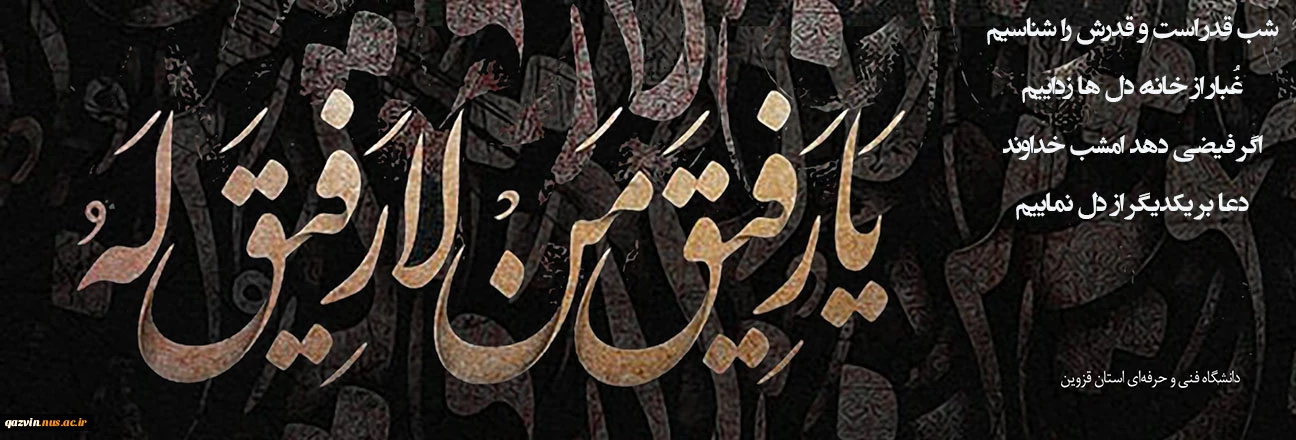 شب قدر است و قدرش را شناسیم
غُبار از خانه دل ها زداییم
اگر فیضی دهد امشب خداوند
دعا بر یکدیگر از دل نماییم
یَا رَفِیقَ مَنْ لَا رَفِیقَ لَهُ
دانشگاه فنی و حرفه‌ای استان قزوین
qazvin.nus.ac.ir